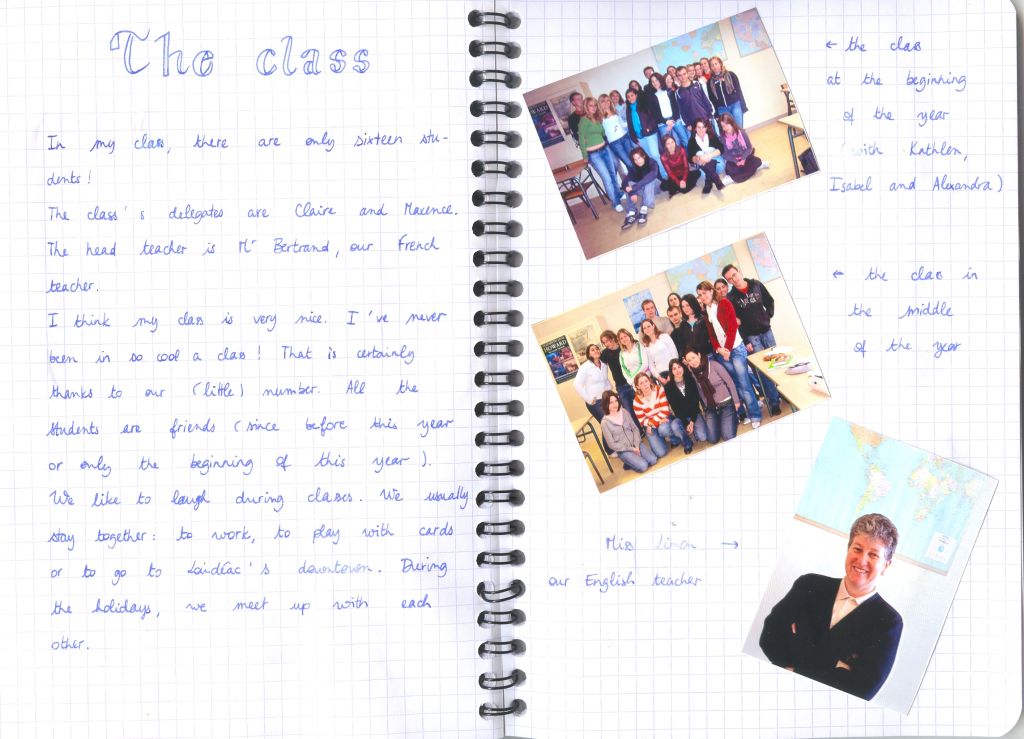 The class
In my class, there are only sixteen stu-
dents!
The class's delegates are Claire and Maxence.
The head teacher is Mr Bertrand, our French
teacher.
I think my class is very nice. I've never
been in so cool a class! That is certainly
thanks to our (little) number. All the
students are friends (since before this year
or only the beginning of this year).
We like to laugh during classes. We usually
stay together: to work, to play with cards
or to go to 's downtown. During
the holidays, we meet up with each
other.
← the class
at the beginning
of the year
(with Kathlen,
Isabel and Alexandra)
← the class in
the middle
of the year
Miss Limon →
our English teacher
HOWARD
HOWARD